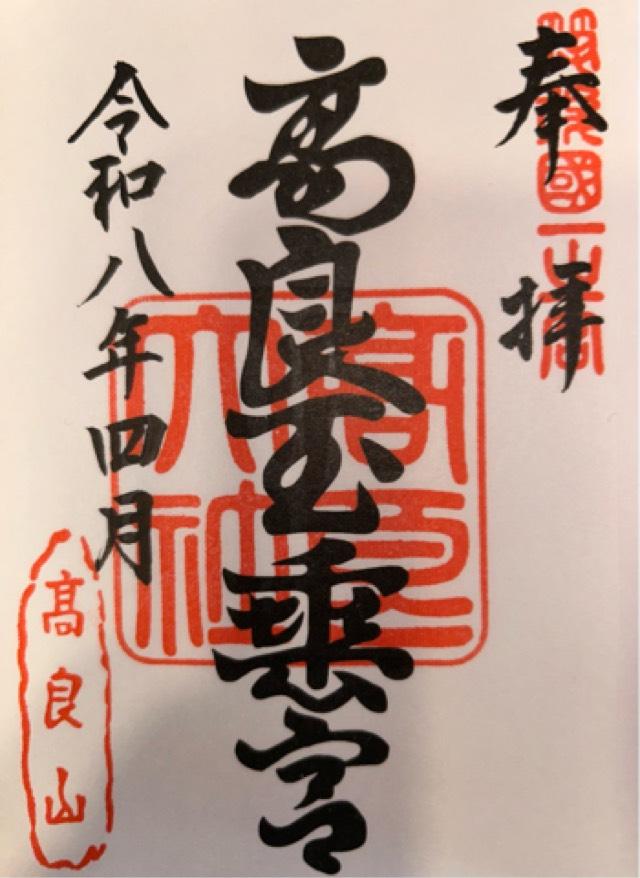 奉拝
筑後國一之宮
高良玉垂宮
高良
大社
令和八年四月
高良山